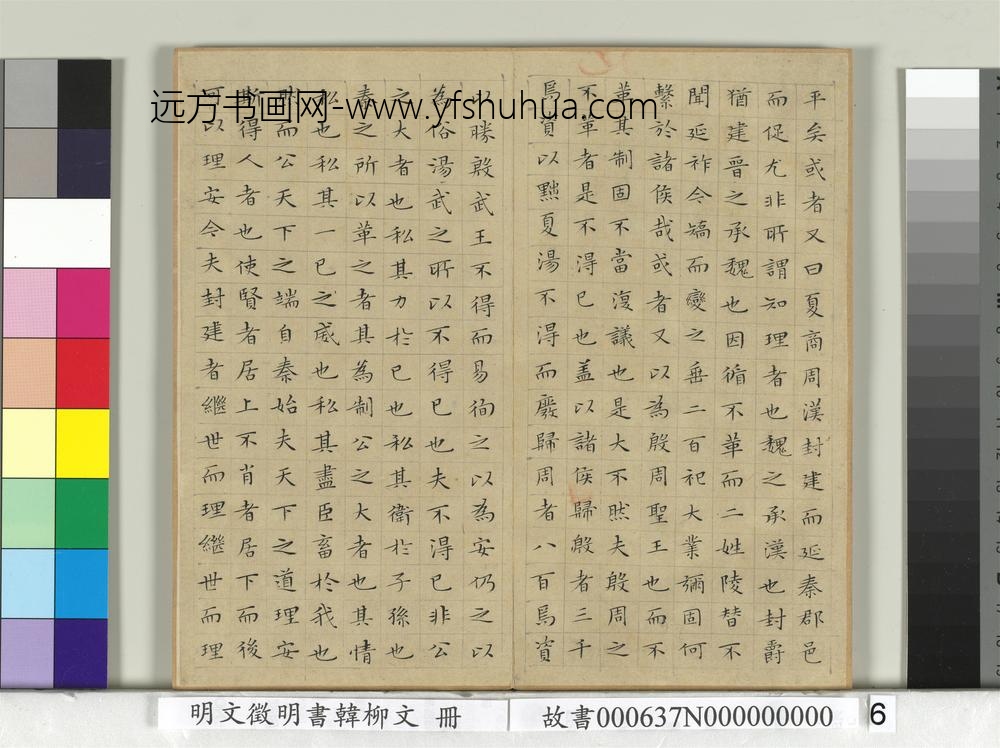 平矣或者又曰夏商周漢封建而延秦郡邑
而促尤非所謂知理者也魏之承漢也封爵
猶建晉之承魏也因循不革而二姓陵替不
聞延祚今矯而變之垂二百祀大業彌固何
繫於諸侯哉或者又以為殷周聖王也而不
革其制固不當復議也是大不然夫殷周之
不革者是不得已也蓋以諸侯歸殷者三千
焉資以黜夏湯不得而廢歸周者八百焉資
以勝殷武王不得而易徇之以為安仍之以
為俗湯武之所以不得已也夫不得已非公
之大者也私其力於己也私其衛於子孫也
秦之所以革之者其為制公之大者也其情
私也私其一己之威也私其盡臣畜於我也
然而公天下之端自秦始夫天下之道理安
斯得人者也使賢者居上不肖者居下而後
可以理安今夫封建者繼世而理繼世而理
远方书画网-www.yfshuhua.com
明文徵明書韓柳文 冊
故書000637N000000000
6